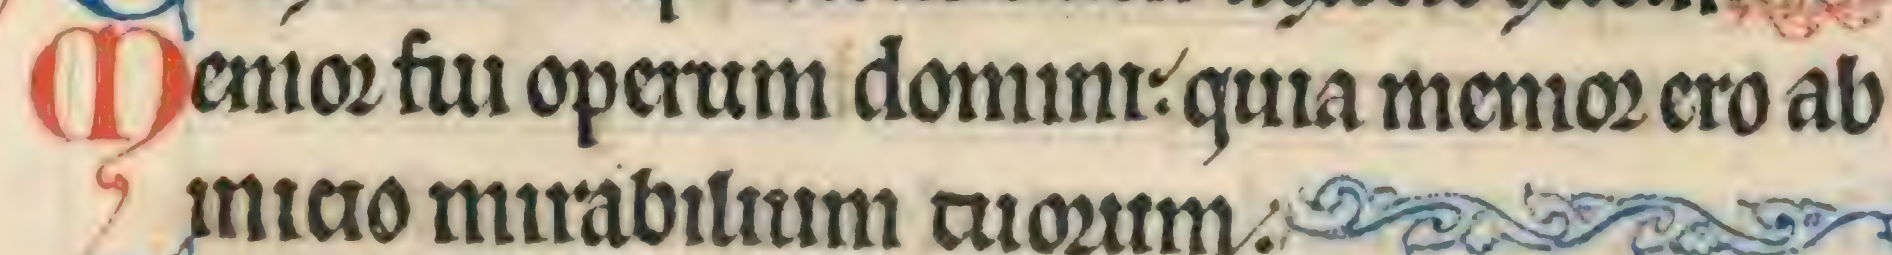 Memor fui operum domini: quia memor ero ab
inicio mirabilium tuorum.